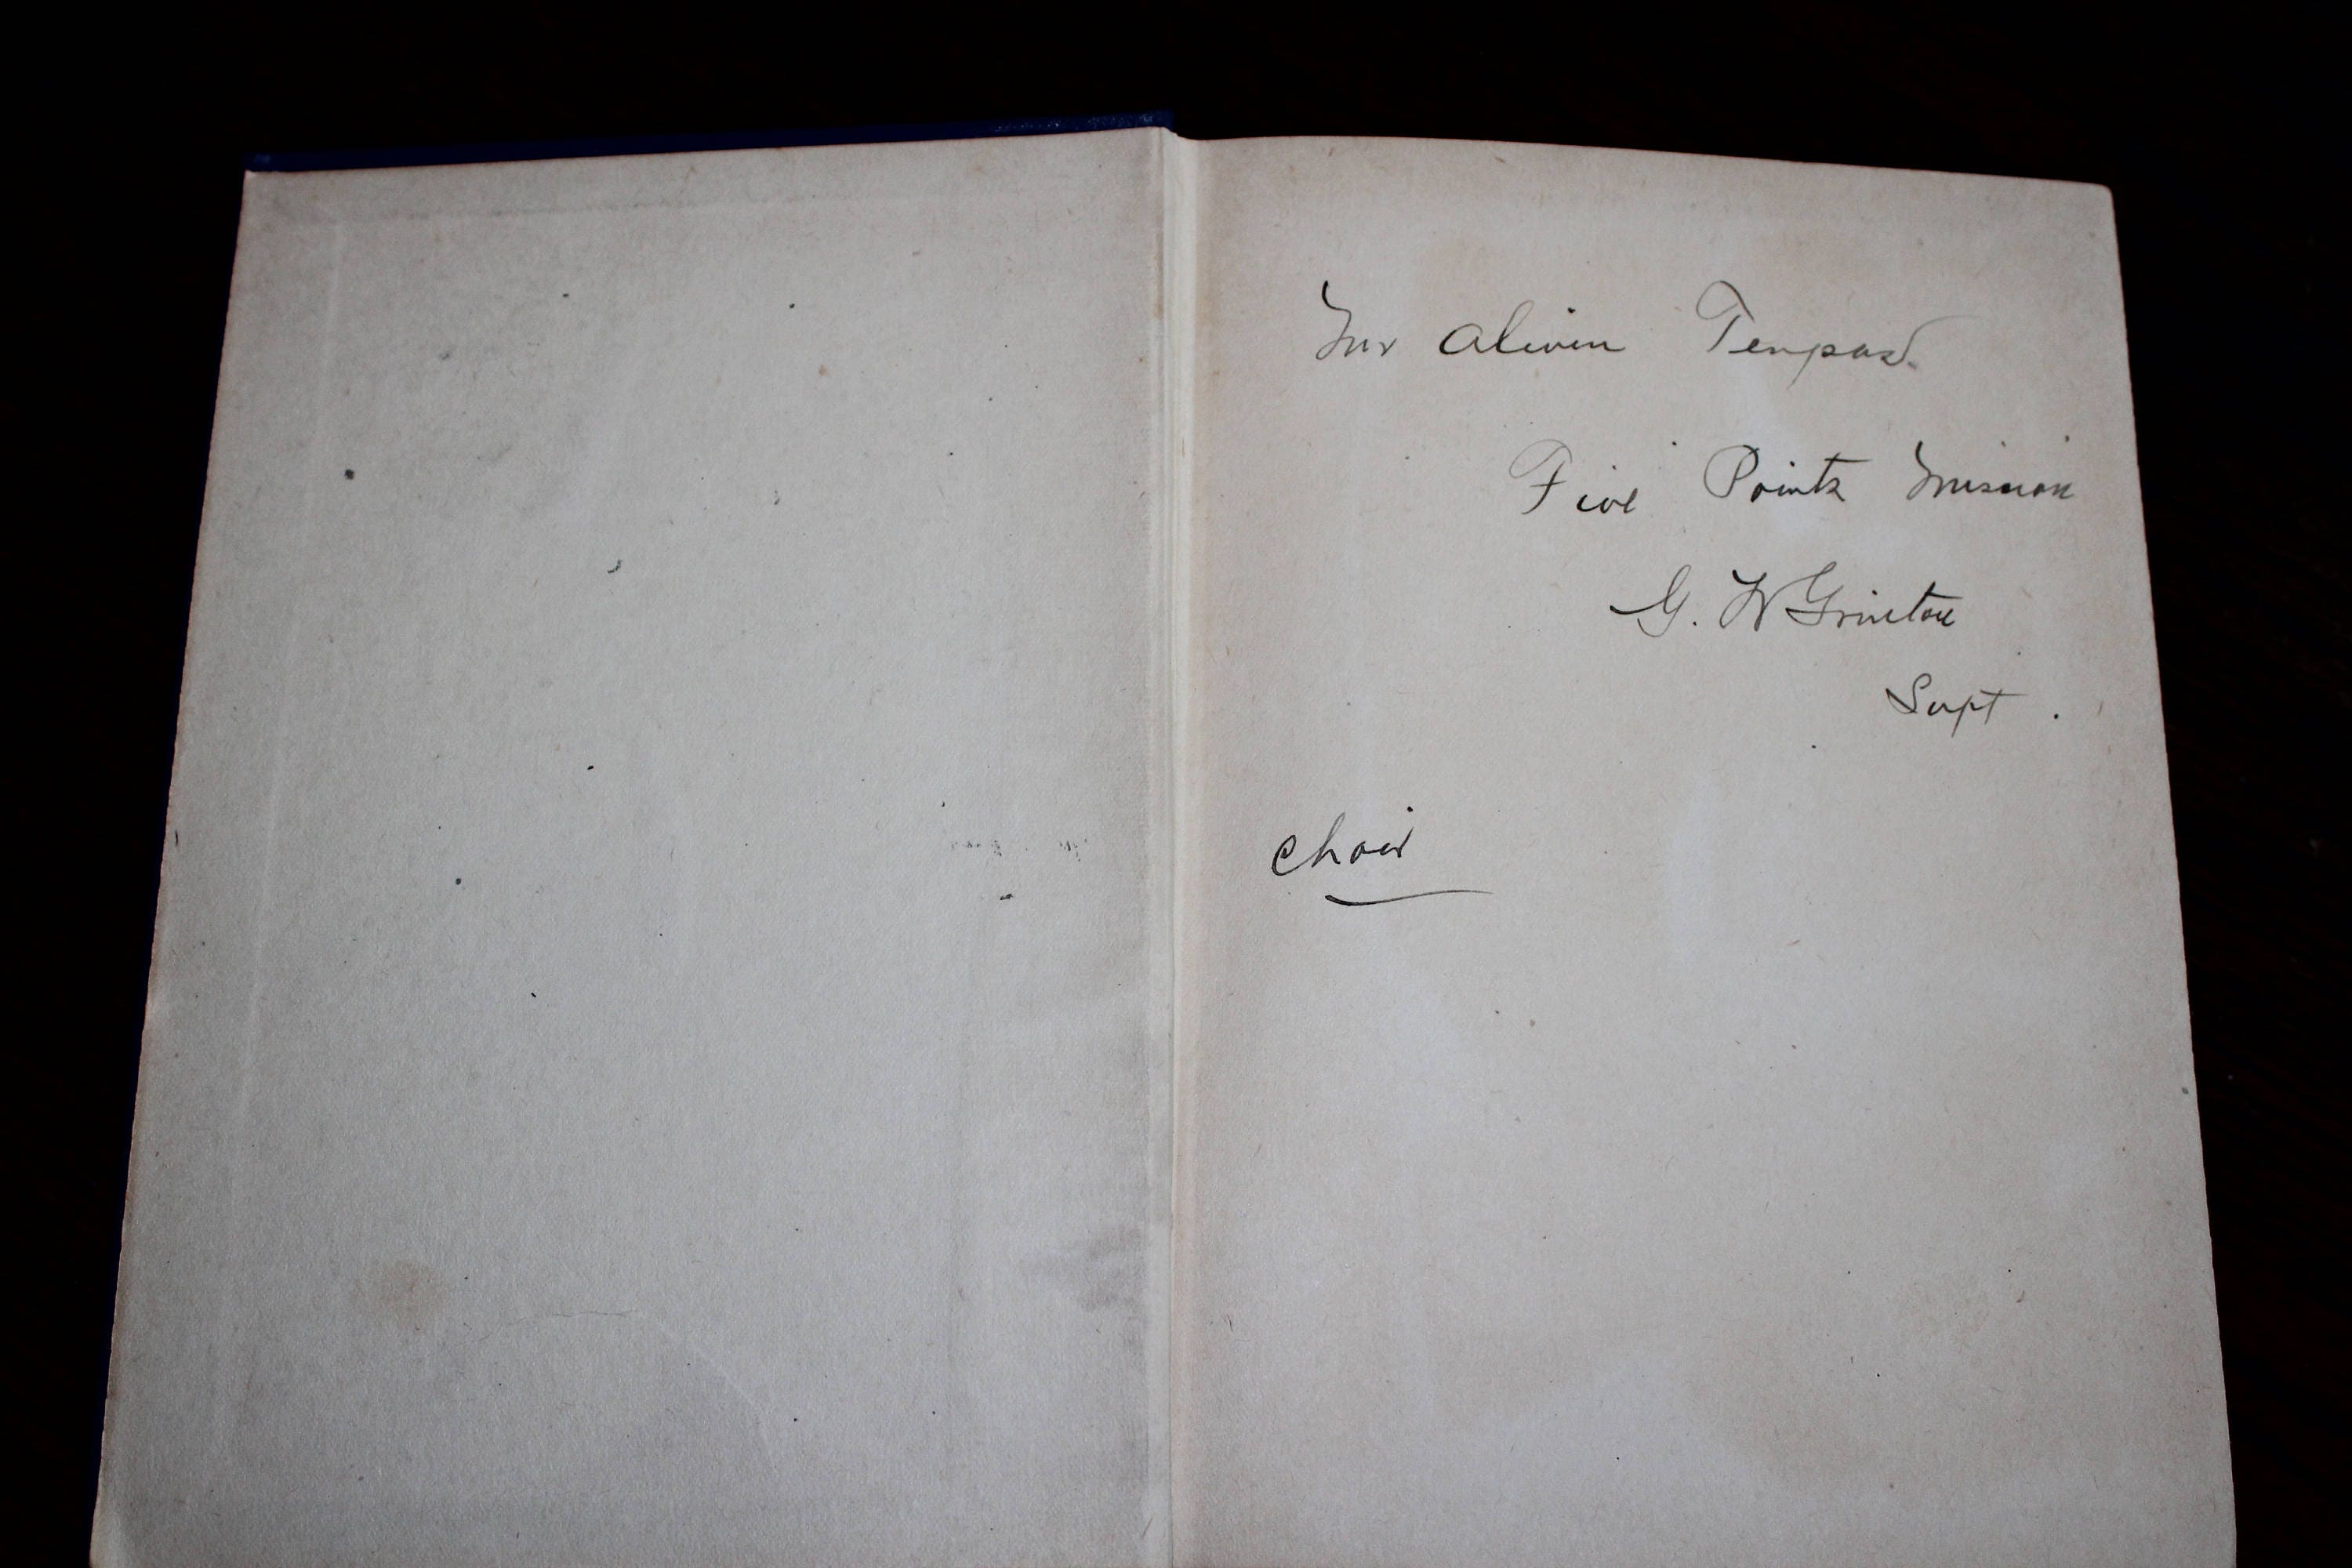 Mr Alivin Tenpas.
Five Points Mission
G. W Grinton
Supt .
Choir